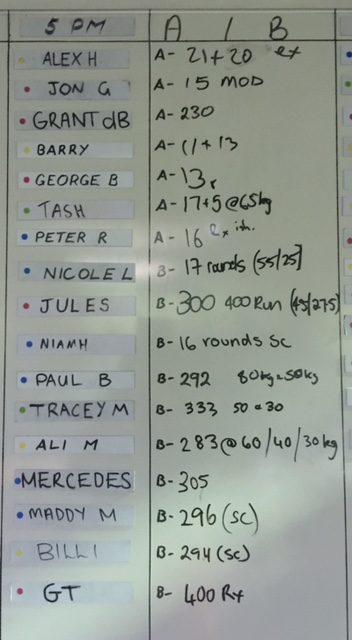 5 PM A / B
ALEX H A- 21+20 rx
JON G A- 15 MOD
GRANT dB A- 230
BARRY A- 11+13
GEORGE B A- 13r
TASH A- 17+5 @65kg
PETER R A- 16 Rx ish.
NICOLE L B- 17 rounds (55/25)
JULES B- 300 400 Run (45/27.5)
NIAMH B- 16 rounds SC
PAUL B B- 292 80kg 50kg
TRACEY M B- 333 50 30
ALI M B- 283 @ 60/40/30kg
MERCEDES B- 305
MADDY M B- 296 (SC)
BILLI B- 294 (SC)
GT B- 400 Rx